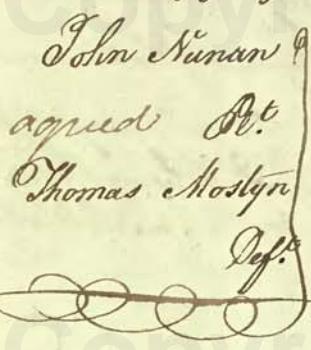 John Nunan
agried Plt.
Thomas Mostyn
Deft.